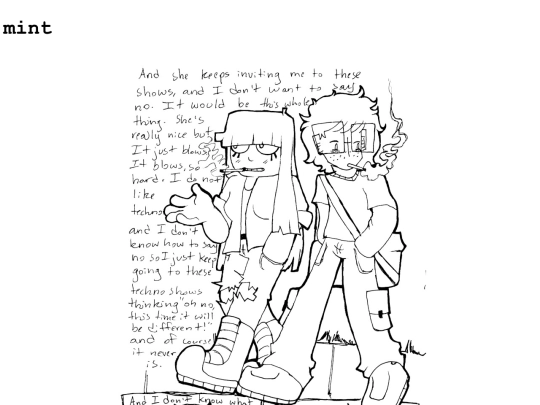 mint
And she keeps inviting me to these
shows, and I don't want to say
no. It would be this whole
thing. She's
really nice but
It just blows,
It blows, so
hard. I do not
like
techno
and I don't
know how to say
no so I just keep
going to these
techno shows
thinking "oh no,
this time it will
be different!"
and of course
it never
is.
And I don't know what